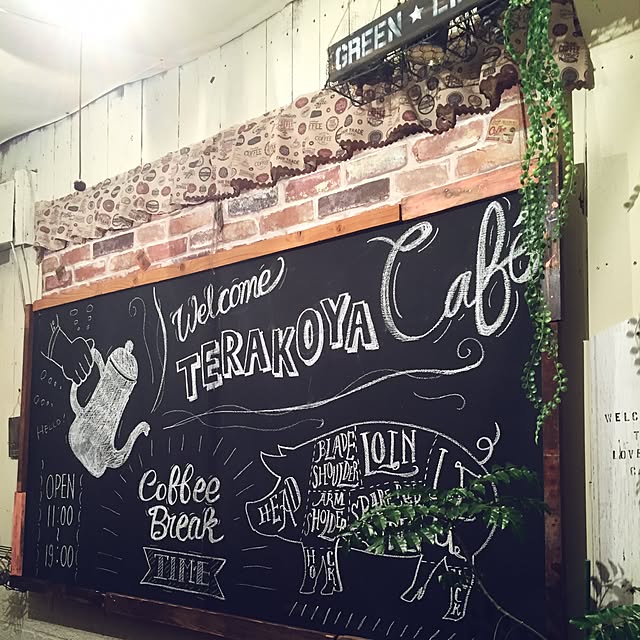 GREEN ★
Welcome
TERAKOYA
Café
HELLO!
OPEN
11:00
19:00
Coffee
Break
TIME
HEAD
BLADE
SHOULDER
LOIN
ARM
SHOLDER
HOCK
WELC
LOVE